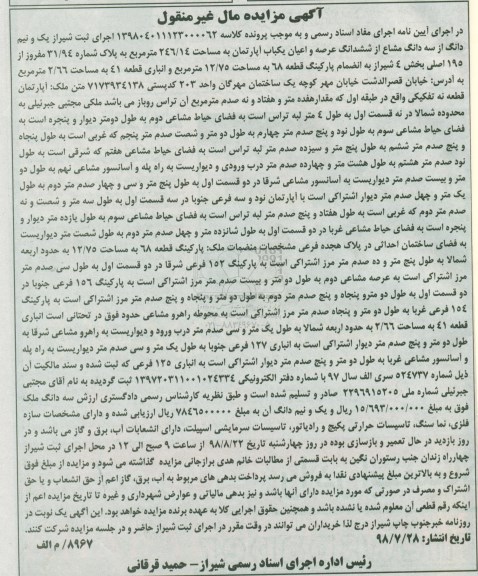 آگهی مزایده مال غیرمنقول
در اجرای آیین نامه اجرای مفاد اسناد رسمی و به موجب پرونده کلاسه ۱۳۹۸۰۴۰۱۱۱۲۳۰۰۰۰۶۲ اجرای ثبت شیراز یک و نیم
دانگ از سه دانگ مشاع از ششدانگ عرصه و اعیان یکباب آپارتمان به مساحت ۲۴۶/۱۴ مترمربع به پلاک شماره ۳۱/۹۴ مفروز از
۱۹۵ اصلی بخش ۴ شیراز به انضمام پارکینگ قطعه ۶۸ به مساحت ۱۲/۷۵ مترمربع و انباری قطعه ۴۱ به مساحت ۲/۶۶ مترمربع
به آدرس: خیابان قصرالدشت خیابان مهر کوچه یک ساختمان مهرگان واحد ۲۰۳ کدپستی ۷۱۷۳۹۳۴۱۳۸ متن ملک: آپارتمان
قطعه نه تفکیکی واقع در طبقه اول که مقدارهفده متر و هفتاد و نه صدم مترمربع آن تراس روباز می باشد ملکی مجتبی جبرئیلی به
محدوده شمالا در نه قسمت اول به طول ۴ متر لبه تراس است به فضای حیاط مشاعی دوم به طول دومتر دیوار و پنجره است به
فضای حیاط مشاعی سوم به طول نود و پنج صدم متر چهارم به طول دو متر و شصت صدم متر پنجم که غربی است به طول پنجاه
و پنج صدم متر ششم به طول پنج متر و سیزده صدم متر لبه تراس است به فضای حیاط مشاعی هفتم که شرقی است به طول
نود صدم متر هشتم به طول هشت متر و چهارده صدم متر درب ورودی و دیواریست به راه پله و آسانسور مشاعی نهم به طول دو
متر و بیست صدم متر دیواریست به آسانسور مشاعی شرقا در دو قسمت اول به طول پنج متر و سی و چهار صدم متر دوم به طول
یک متر و چهل صدم متر دیوار اشتراکی است با آپارتمان نود و سه فرعی جنوبا در سه قسمت اول به طول سه متر و شصت و نه
صدم متر دوم که غربی است به طول هفتاد و پنج صدم متر لبه تراس است به فضای حیاط مشاعی سوم به طول یازده متر دیوار و
پنجره است به فضای حیاط مشاعی غربا در دو قسمت اول به طول شانزده متر و چهل صدم متر دوم به طول شصت متر دیواریست
به فضای ساختمان احداثی در پلاک هجده فرعی مشخصات منضمات ملک: پارکینگ قطعه ۶۸ به مساحت ۱۲/۷۵ به حدود اربعه
شمالا به طول پنج متر و ده صدم متر مرز اشتراکی است به پارکینگ ۱۵۲ فرعی شرقا در دو قسمت اول به طول سی صدم متر
مرز اشتراکی است به عرصه مشاعی دوم به طول دو متر و بیست صدم متر مرز اشتراکی است به پارکینگ ۱۵۶ فرعی جنوبا در
دو قسمت اول به طول دو مترو پنجاه و پنج صدم متر دوم به طول دو متر و پنجاه و پنج صدم متر مرز اشتراکی است به پارکینگ
۱۵۴ فرعی غربا به طول دو متر و پنجاه صدم متر مرز اشتراکی است به محوطه راهرو مشاعی حدود فوق در تحتانی است انباری
قطعه ۴۱ به مساحت ۲/۶۶ به حدود اربعه شمالا به طول یک متر و سی صدم متر درب ورود و دیواریست به راهرو مشاعی شرقا به
طول دو متر و پنج صدم متر دیوار اشتراکی است به انباری ۱۲۷ فرعی جنوبا به طول یک متر و سی صدم متر دیواریست به راه پله
و آسانسور مشاعی غربا به طول دو متر و پنج صدم متر دیوار اشتراکی است به انباری ۱۲۵ فرعی که ثبت شده و سند مالکیت آن
ذیل شماره ۵۲۴۷۳۷ سری الف سال ۹۷ با شماره دفتر الکترونیکی ۱۳۹۷۲۰۳۱۱۰۰۱۰۲۴۳۳۴ ثبت گردیده به نام آقای مجتبی
جبرئیلی شماره ملی ۲۲۹۶۹۱۵۲۰۵ صادر و تسلیم شده است و طبق نظریه کارشناس رسمی دادگستری ارزش سه دانگ ملک
فوق به مبلغ ۱۵/۶۹۳/۰۰۰/۰۰۰ ریال و یک و نیم دانگ آن به مبلغ ۷۸۴۶۵۰۰۰۰۰ ریال ارزیابی شده و دارای مشخصات سازه
فلزی، نما سنگ، تاسیسات حرارتی پکیج و رادیاتور، تاسیسات سرمایشی اسپیلت، دارای انشعابات آب، برق و گاز می باشد و در
روز بازدید در حال تعمیر و بازسازی بوده در روز چهارشنبه تاریخ ۹۸/۸/۲۲ از ساعت ۹ صبح الی ۱۲ در محل اجرای ثبت شیراز
چهارراه زندان جنب رستوران نگین به بابت قسمتی از مطالبات خانم هدی برازجانی مزایده گذاشته می شود و مزایده از مبلغ فوق
شروع و به بالاترین مبلغ پیشنهادی نقدا به فروش می رسد پرداخت بدهی های مربوط به آب، برق، گاز اعم از حق انشعاب و یا حق
اشتراک و مصرف در صورتی که مورد مزایده دارای آنها باشد و نیز بدهی مالیاتی و عوارض شهرداری و غیره تا تاریخ مزایده اعم از
اینکه رقم قطعی آن معلوم شده یا نشده باشد و همچنین حقوق اجرایی کلا به عهده برنده مزایده خواهد بود. این آگهی یک نوبت در
روزنامه خبرجنوب چاپ شیراز درج لذا خریداران می توانند در وقت مقرر در اجرای ثبت شیراز حاضر و در جلسه مزایده شرکت کنند.
تاریخ انتشار: ۹۸/۷/۲۸
۸۹۶۷/ م الف
رئیس اداره اجرای اسناد رسمی شیراز – حمید قرقانی